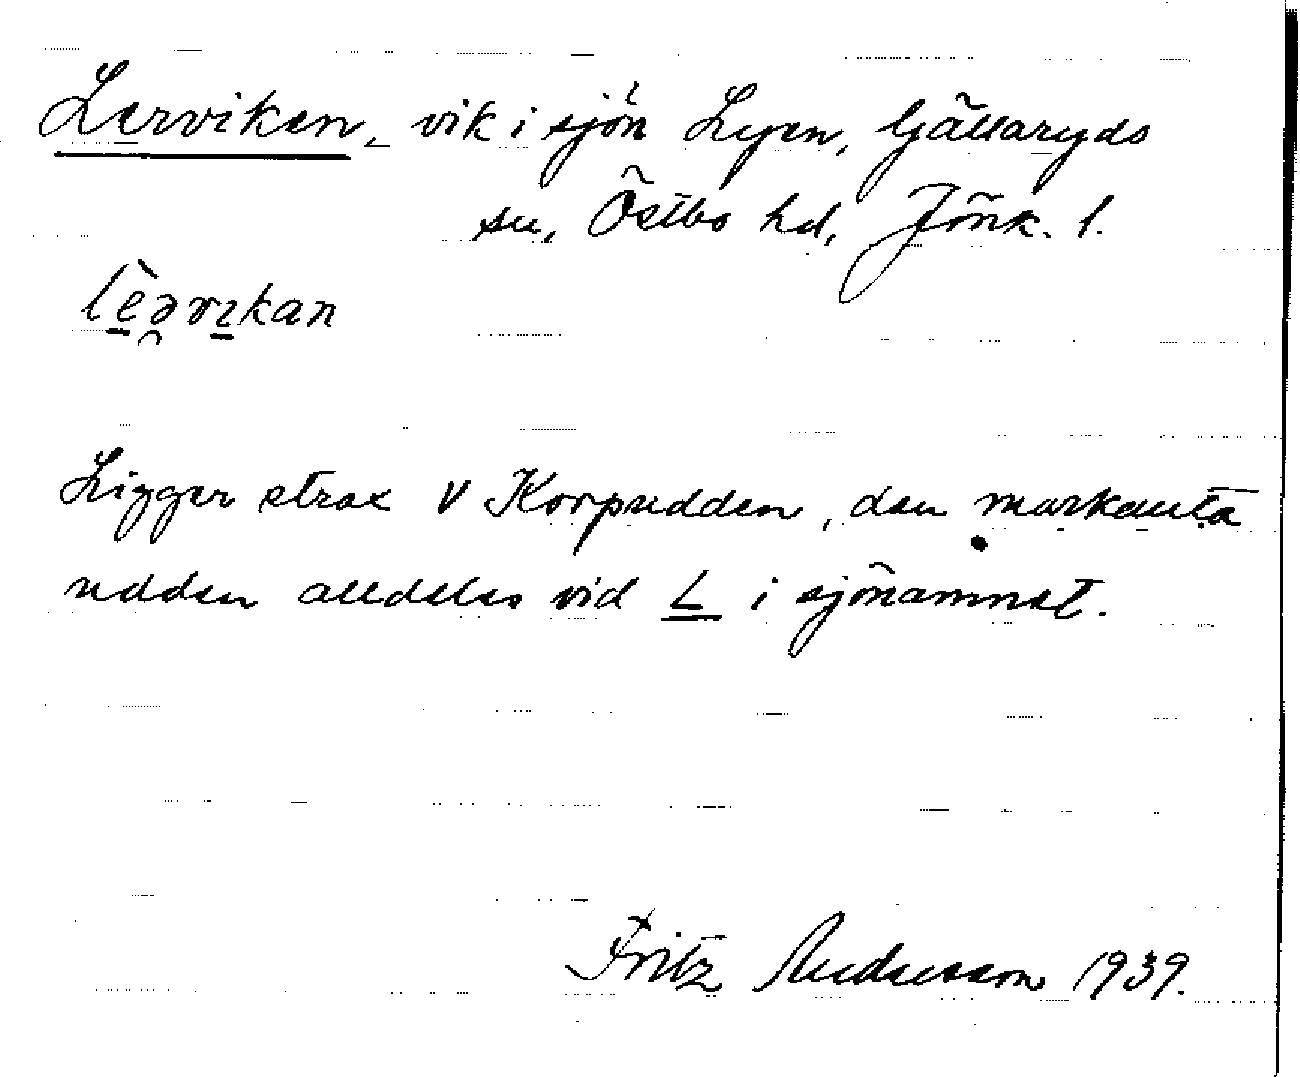 Lerviken, vik i sjön Lyen, Gällaryds
sn, Östbo hd, Jönk. l.
lè̱ə̯rvɪ̱kan
Ligger strax V Korpudden, den markanta
udden alldeles vid L i sjönamnet.
Fritz Andersson 1939.